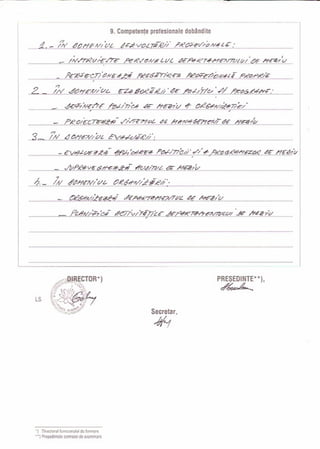 9. Competenţe profesionale dobândite
1. - ÎN DOMENIUL DEZVOLTĂRII PROFESIONALE:
- INSTRUIEŞTE PERSONALUL DEPARTAMENTULUI DE MEDIU
- PERFECŢIONEAZĂ PREGĂTIREA PROFESIONALĂ PROPRIE
2 - ÎN DOMENIUL ELABORĂRII DE POLITICI ŞI PROGRAME:
- DEFINEŞTE POLITICA DE MEDIU A ORGANIZAŢIEI
- PROIECTEAZĂ SISTEMUL DE MANAGEMENT DE MEDIU
3 - ÎN DOMENIUL EVALUĂRII:
- EVALUEAZĂ APLICAREA POLITICII ŞI A PROGRAMELOR DE MEDIU
- SUPRAVEGHEAZĂ AUDITUL DE MEDIU
4. - ÎN DOMENIUL ORGANIZĂRII:
- ORGANIZEAZĂ DEPARTAMENTUL DE MEDIU
- PLANIFICĂ ACTIVITĂŢILE DEPARTAMENTULUI DE MEDIU
DIRECTOR*)
PREŞEDINTE**),
L.S.
Secretar,
*) Directorul furnizorului de formare
**) Preşedintele comisiei de examinare